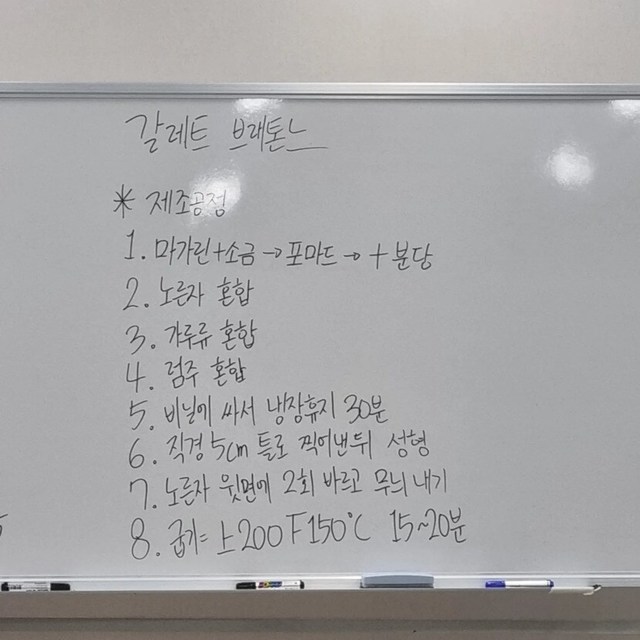 갈레트 브래톤느
* 제조공정
1. 마가린+소금 → 포마드 → + 분당
2. 노른자 혼합
3. 가루류 혼합
4. 럼주 혼합
5. 비닐에 싸서 냉장휴지 30분
6. 직경 5cm 틀로 찍어낸뒤 성형
7. 노른자 윗면에 2회 바르고 무늬 내기
8. 굽기= 上200 下150℃ 15~20분